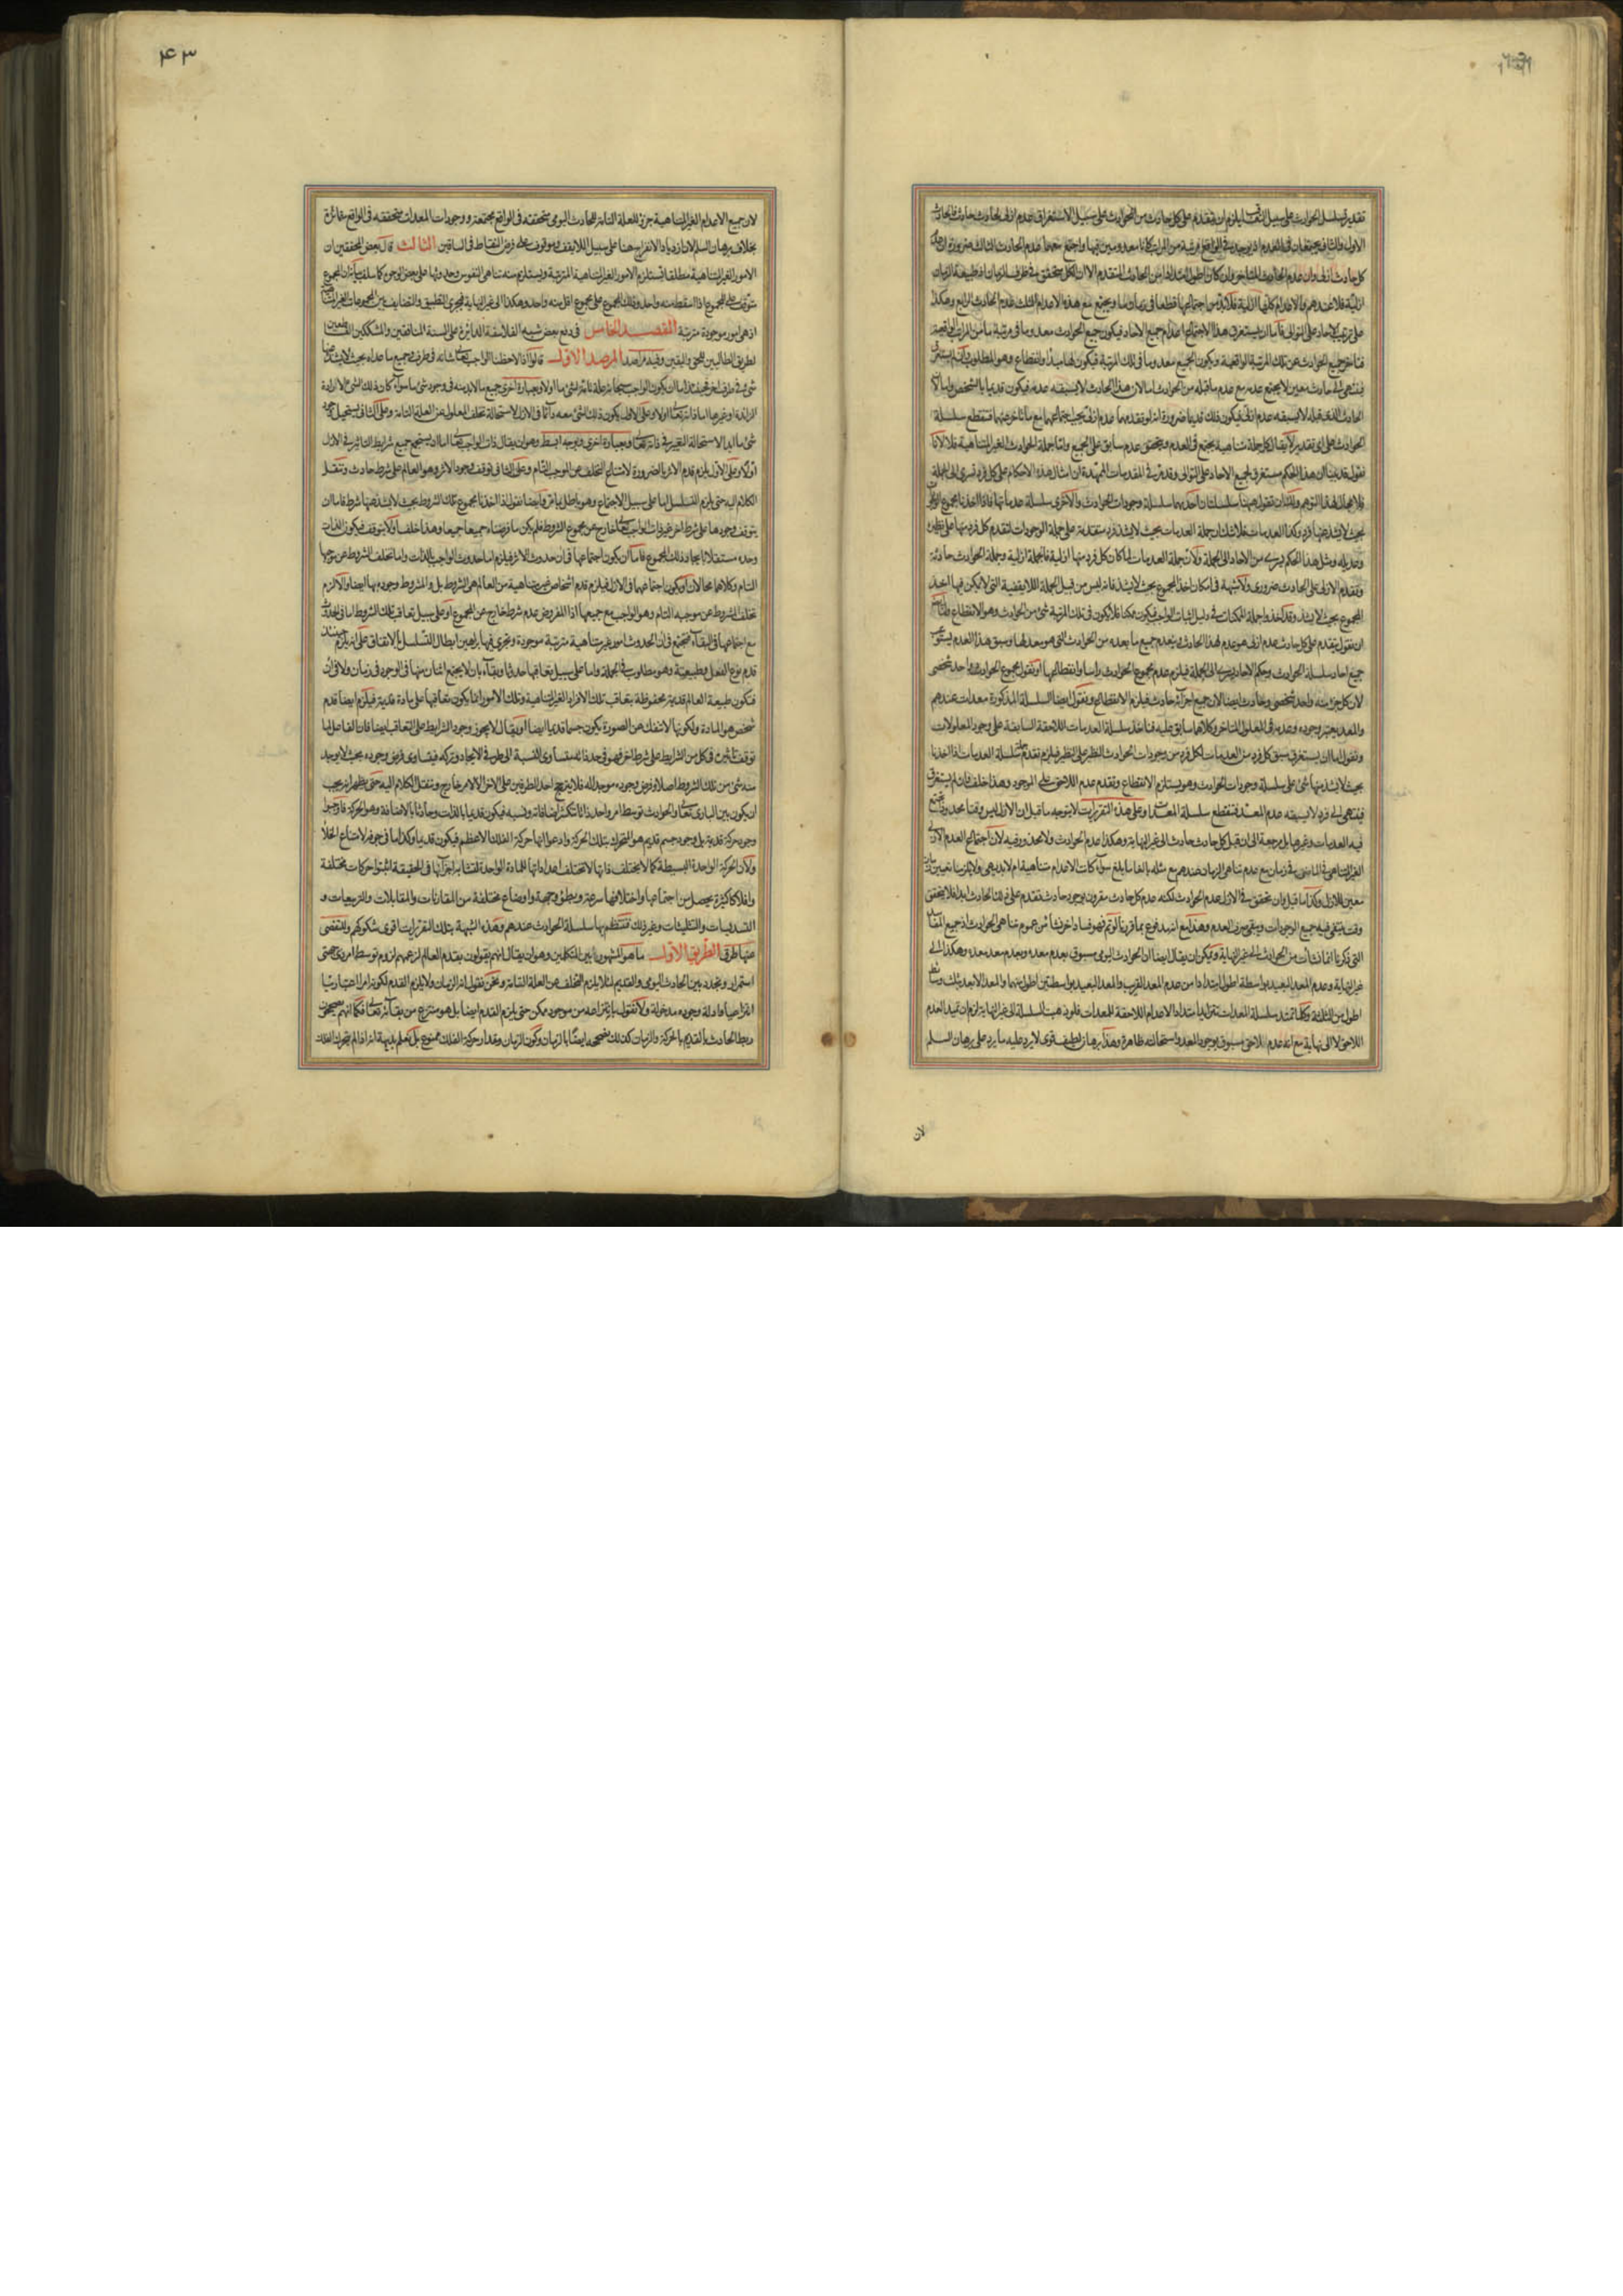 تقدير تسلسل الحوادث على سبيل التعاقب يلزم ان يتقدم على كل حادث من الحوادث على سبيل الاستغراق عدم ازلى لحادث حادث فالحادث
الاول والثانى يجتمعان فى العدم
كل حادث ازلى وان عدم الحادث المتاخر وان كان اطول امتدادا من الحادث المتقدم الا ان الكل متحقق فى ظرف الزمان اذ طبيعة الزمان
ازلية عندهم فالاعدام كلها ازلية فلا بد من اجتماعها قطعا فى زمان ما ويجتمع مع هذه الاعدام الثلث عدم الحادث الرابع وهكذا
على ترتيب الاحاد على التوالى فاما ان يستغرق هذا الاجتماع اعدام جميع الاحاد فيكون جميع الحوادث معدوما فى مرتبة ما من المراتب الواقعية
فتاخر جميع الحوادث عن تلك المرتبة الواقعية ويكون الجميع معدوما فى تلك المرتبة فيكون لها مبدا وانقطاع وهو المطلوب وان لم يستغرق
فينتهى الى حادث معين لا يجتمع عدمه مع عدم ما قبله من الحوادث اما لان هذا الحادث لا يسبقه عدم فيكون قديما بالشخص واما لان
الحادث الذى قبله لا يسبقه عدم ازلى فيكون ذلك قديما ضرورة انه لو تقدمهما عدم ازلى يجب اجتماعهما مع ما تاخر عنهما فتنقطع سلسلة
الحوادث على اى تقدير لا يقال كل جملة متناهية يجتمع فى العدم ويتحقق عدم سابق على الجميع واما جملة الحوادث الغير المتناهية فلا لانا
نقول قد بينا ان هذا الحكم مستغرق لجميع الاحاد على التوالى وقد مر فى المقدمات الممهدة ان امثال هذه الاحكام على كل فرد تسرى الى الجملة
فلا مجال لهذا التوهم ولك ان تقول ههنا سلسلتان احدهما سلسلة وجودات الحوادث والاخرى سلسلة عدماتها فاذا اخذنا مجموع الوجودات
بحيث لا يشذ عنها فرد وكذا العدمات فلا شك ان جملة العدمات بحيث لا يشذ فرد متقدمة على جملة الوجودات لتقدم كل فرد منها على نظيره
وعديله ومثل هذا الحكم يسرى من الاحاد الى الجملة ولان جملة العدمات لما كان كل فرد منها ازلية فالجملة ازلية وجملة الحوادث حادثة
وتقدم الازلى على الحادث ضرورى ولا شبهة فى امكان اخذ المجموع بحيث لا يشذ فانه ليس من قبيل الجملة اللايقفية التى لا يمكن فيها اخذ
المجموع بحيث لا يشذ وقد اخذوا جملة الممكنات فى دليل اثبات الواجب فيكون ممكنا فلا يكون فى تلك المرتبة شئ من الحوادث وهو الانقطاع
ان نقول يتقدم على كل حادث عدم ازلى هو عدم لهذا الحادث وينعدم جميع ما بعده من الحوادث التى هو معد لها وسبق هذا العدم يستوعب
جميع احاد سلسلة الحوادث وحكم الاحاد يسرى الى الجملة فيلزم عدم مجموع الحوادث راسا وانقطاعها او نقول مجموع الحوادث واحد شخصى
لان كل جزء منه واحد شخصى وحادث ايضا لان جميع اجزائه حادث فيلزم الانقطاع ونقول ايضا السلسلة المذكورة معدات عندهم
والمعد يعتبر وجوده وعدمه فى المعلول المتاخر وكلاهما سابق عليه فناخذ سلسلة العدمات اللاحقة السابقة على وجود المعلولات
ونقول اما ان يستغرق سبق كل فرد من العدمات لكل فرد من وجودات الحوادث النظير على النظير فيلزم تقدم سلسلة العدمات اذا اخذنا
بحيث لا يشذ منها شئ على سلسلة وجودات الحوادث وهو يستلزم الانقطاع وتقدم عدم اللاحق على الموجود وهذا خلف فان لم يستغرق
فينتهى الى فرد لا يسبقه عدم المعد فتنقطع سلسلة المعدات وعلى هذه التقريرات لا يتوجه ما قيل ان الازل ليس وقتا محدودا
فيه العدمات وغيرها بل مرجعه الى ان قبل كل حادث حادث الى غير النهاية وهكذا عدم الحوادث ولا محذور فيه لان اجتماع العدم الازلى
الغير المتناهى فى الماضى فى زمان مع عدم متناهى الزمان عندهم مع مثله بالغا ما بلغ سواء كانت الاعدام متناهية ام لا بديهى ولا يلزمنا تعيين زمان
معين للازل وكذا ما قيل وان تحقق فى الازل عدم الحوادث لكنه عدم كل حادث مقرون بوجود حادث تقدم على ذلك الحادث ابدا فلا يتحقق
وقت ينتفى فيه جميع الوجودات ويبقى صرف العدم وهذا مع انه مدفوع بما قررنا
التى ذكرنا
غير النهاية وعدم المعد البعيد بواسطة اطول امتدادا من عدم المعد القريب والمعد البعيد بواسطتين اطول منهما والمعد الابعد بثلث وسائط
اطول من الثلاثة وكلما تمتد سلسلة المعدات تتزايد امتداد الاعدام اللاحقة للمعدات فلو ذهبت السلسلة الى غير النهاية لزم ان يمتد العدم
اللاحق لا الى نهاية مع انه عدم لاحق مسبوق بوجود المعد واستحالته ظاهرة وهذا برهان لطيف قوى لا يرد عليه ما يرد على برهان السلم
لان
٤٣
لان جميع الاعدام الغير المتناهية جزء للعلة التامة للحادث اليومى متحققة فى الواقع مجتمعة ووجودات المعدات متحققة فى الواقع متمائزة
بخلاف برهان السلم لان ازدياد الانفراج هنا على سبيل اللايقف وموقوف على فرض النقاط فى الساقين الثالث قال بعض المحققين ان
الامور الغير المتناهية مطلقا يستلزم الامور الغير المتناهية المترتبة ويستلزم منه تناهى النفوس وحدوثها على بعض الوجوه كما سلف بيانه ان المجموع
متوقف على المجموع اذا اسقط منه واحد وذلك المجموع على مجموع اقل منه واحد وهكذا الى غير النهاية فيجرى التطبيق والتضايف بين المجموعات الغير المتناهية
اذ هى امور موجودة مترتبة المقصد الخامس فى دفع بعض شبه الفلاسفة الدائرة على السنة المنافقين والمشككين القاطعين
لطريق الطالبين للحق واليقين وفيه مراصد المرصد الاول قالوا اذا لاحظنا الواجب تعالى شانه فى طرف وجميع ما عداه بحيث لا يشذ منها
شئ فى طرف اخر فحينئذ اما ان يكون الواجب سبحانه علة تامة لشئ ما او لا وبعبارة اخرى جميع ما لا بد منه فى وجود شئ ما سواء كان ذلك الشئ الارادة
الزائدة او غيرها اما ذاته تعالى او لا وعلى الاول يكون ذلك الشئ معه دائما فى الازل لاستحالة تخلف المعلول عن العلة التامة وعلى الثانى يستحيل وجود
شئ ما ابدا لاستحالة التغير فى ذاته تعالى وبعبارة اخرى وبوجه ابسط وهو ان يقال ذات الواجب تعالى اما ان يستجمع جميع شرايط التاثير فى الازل
او لا وعلى الاول يلزم قدم الاثر بالضرورة لامتناع التخلف عن الموجب التام وعلى الثانى توقف وجود الاثر وهو العالم على شرط حادث وننقل
الكلام اليه حتى يلزم التسلسل اما على سبيل الاجتماع وهو باطل بما مر وايضا نقول اذا اخذنا مجموع تلك الشروط بحيث لا يشذ عنها شرط فاما ان
يتوقف وجودها على شرط اخر غير ذات الواجب تعالى خارج عن مجموع الشروط فلم يكن ما فرضناه جميعا جميعا وهذا خلف او لا يتوقف فيكون الذات
وحده مستقلا بايجاد ذلك المجموع فاما ان يكون اجتماعها فى ان حدوث الاثر فيلزم اما حدوث الواجب بالذات واما تخلف الشروط عن موجبها
التام وكلاهما محالان او يكون اجتماعهما فى الازل فيلزم قدم اشخاص غير متناهية من العالم هى الشروط بل والمشروط وجوده بها ايضا والا لزم
تخلف المشروط عن موجبه التام وهو الواجب مع جميعها اذ المفروض عدم شرط خارج عن المجموع او على سبيل تعاقب تلك الشروط اما فى الحدوث
مع اجتماعها فى البقاء فتجتمع فى ان الحدوث امور غير متناهية مترتبة موجودة وتجرى فيها براهين ابطال التسلسل بالاتفاق على انه يلزم حينئذ
قدم نوع الفعل وطبيعته وهو مطلوب فى الجملة واما على سبيل تعاقبها حدوثا وبقاء بان لا يجتمع اثنان منها فى الوجود فى زمان ولا فى ان
فتكون طبيعة العالم قديمة محفوظة بتعاقب تلك الافراد الغير المتناهية وتلك الامور انما يكون تعاقبها على مادة قديمة فيلزم ايضا قدم
شخص هو المادة ولكونها لا تنفك عن الصورة يكون جسما قديما ايضا او يقال لا يجوز وجود الشرايط على التعاقب ايضا فان الفاعل لما
توقف تاثيره فى كل من الشرايط على شرط اخر فهو فى حد ذاته متساوى النسبة الى طرفى الايجاد وتركه فيتساوى فرض وجوده بحيث لا يوجد
منه شئ من تلك الشروط اصلا وفرض وجوده موجدا له فلا يترجح احد الطرفين على الاخر الا لامر خارج وننقل الكلام اليه حتى يظهر انه يجب
ان يكون بين البارى تعالى والحوادث توسط امر واحد ذاتا متكثر اضافاته ونسبه فيكون قديما بالذات وحادثا بالاضافة وهو الحركة فاوجبوا
وجود حركة قديمة بل وجود جسم قديم هو المتحرك بتلك الحركة وادعوا انها حركة الفلك الاعظم فيكون قديما وكذا ما فى جوفه لامتناع الخلا
ولان الحركة الواحدة البسيطة كما لا يختلف ذاتها لا تختلف اعداداتها للمادة الواحدة لتشابه اجزائها فى الحقيقة اثبتوا حركات مختلفة
وافلاكا كثيرة يحصل من اجتماعها واختلافها سرعة وبطؤ وجهة واوضاع مختلفة من المقارنات والمقابلات والتربيعات و
التسديسات والتثليثات وغير ذلك تنتظم بها سلسلة الحوادث عندهم وهذه الشبهة بتلك التقريرات اقوى شكوكهم وللتفصى
عنها طرق الطريق الاول ما هو المشهور بين المتكلمين وهو ان يقال انهم يقولون بقدم العالم لزعمهم لزوم توسط امر ذى جهتى
استمرار وتجدد بين الحادث اليومى والقديم لئلا يلزم التخلف عن العلة التامة ونحن نقول انه الزمان ولا يلزم القدم لكونه امرا اعتباريا
انتزاعيا وادلة وجوده مدخولة ولا نقول بانتزاعه من موجود ممكن حتى يلزم القدم ايضا بل هو منتزع من بقائه تعالى فكما انهم يصححون
ربط الحادث بالقديم بالحركة والزمان كذلك نصححه ايضا بالزمان وكون الزمان مقدار حركة الفلك ممنوع بل نعلم بديهة انه اذا لم يتحرك الفلك